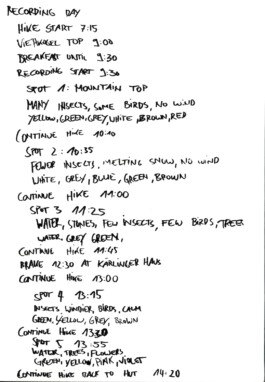 RECORDING DAY
HIKE START 7:15
VIEHKOGEL TOP 9:00
BREAKFAST UNTIL 9:30
RECORDING START 9:30
SPOT 1: MOUNTAIN TOP
MANY INSECTS, SOME BIRDS, NO WIND
YELLOW, GREEN, GREY, WHITE, BROWN, RED
CONTINUE HIKE 10:10
SPOT 2: 10:35
FEWER INSECTS, MELTING SNOW, NO WIND
WHITE, GREY, BLUE, GREEN, BROWN
CONTINUE HIKE 11:00
SPOT 3 11:25
WATER, STONES, FEW INSECTS, FEW BIRDS, TREES
WATER, GREY GREEN,
CONTINUE HIKE 11:45
12:30 AT KÄRLINGER HAUS
CONTINUE HIKE 13:00
SPOT 4 13:15
INSECTS, WINDIER, BIRDS, CALM
GREEN, YELLOW, GREY, BROWN
CONTINUE HIKE 13:30
SPOT 5 13:55
WATER, TREES, FLOWERS
GREEN, YELLOW, PINK, VIOLET
CONTINUE HIKE BACK TO HUT 14:20